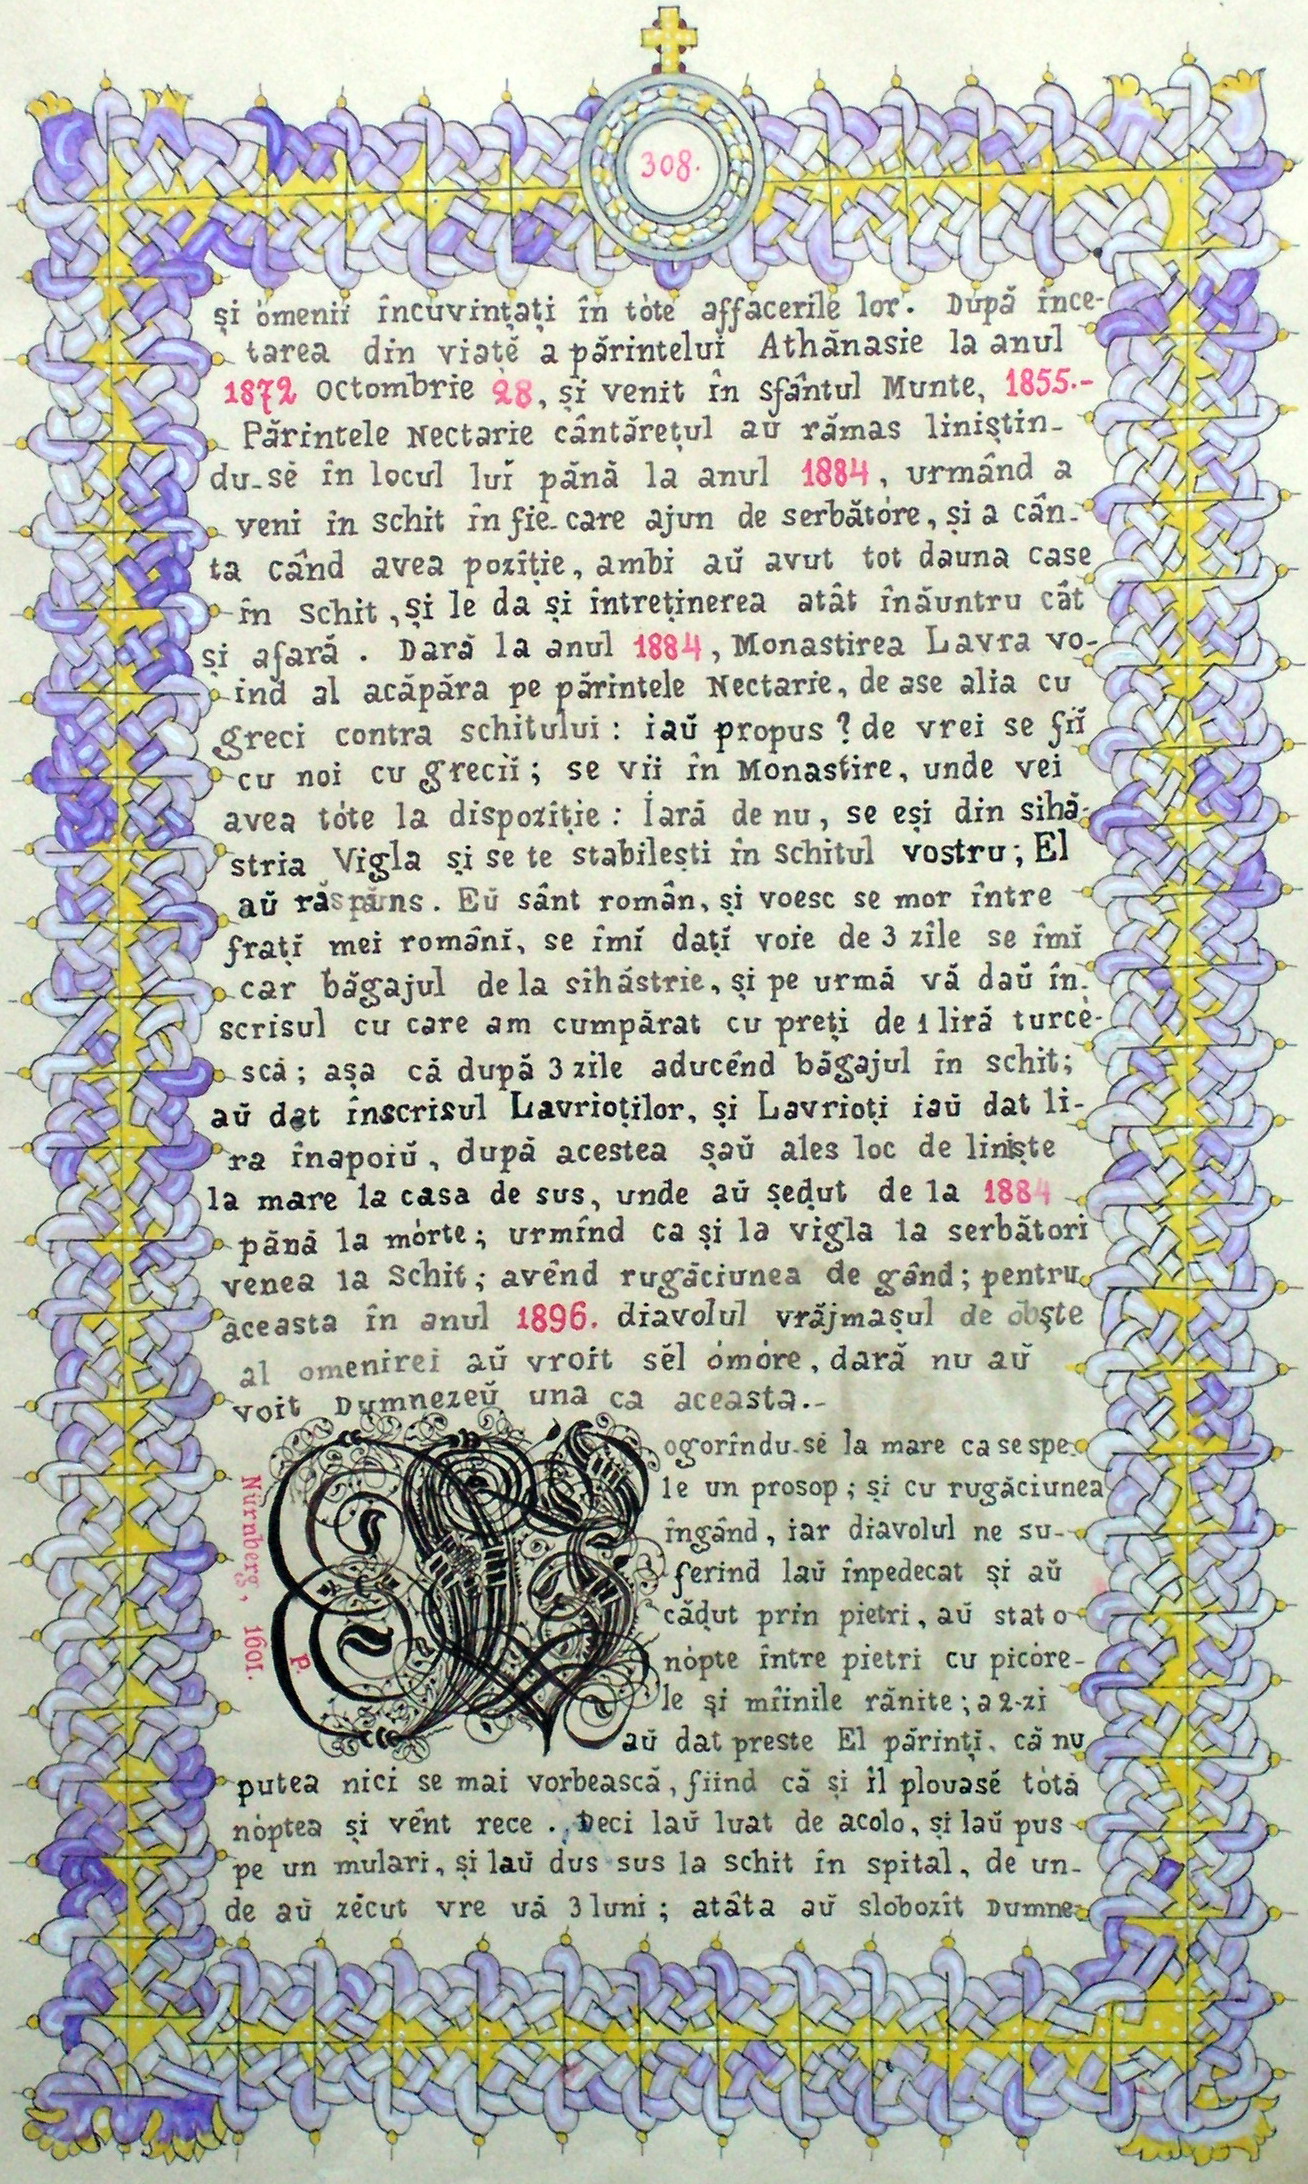 308.
și ómenii încuviințați în tóte affacerile lor. După înce-
tarea din viață a părintelui Athănasie la anul
1872 octombrie 28, și venit în sfântul Munte, 1855.-
Părintele Nectarie cântărețul aŭ rămas liniștin-
du-sĕ în locul luĭ până la anul 1884, urmând a
veni în schit în fie-care ajun de serbătóre, și a cân-
ta când avea poziție, ambi aŭ avut tot dauna case
în schit, și le da și întreținerea atât înăuntru cât
și afară. Dară la anul 1884, Monastirea Lavra vo-
ind al acăpăra pe părintele Nectarie, de ase alia cu
greci contra schitului: iaŭ propus? de vrei se fiĭ
cu noi cu greciĭ; se vii în Monastire, unde vei
avea tóte la dispoziție: Iară de nu, se eși din sihă-
stria Vigla și se te stabilești în schitul vostru; El
aŭ răspăns. Eŭ sânt român, și voesc se mor între
frațĭ mei românĭ, se îmĭ dațĭ voie de 3 zile se îmĭ
car băgajul de la sihăstrie, și pe urmă vă daŭ în-
scrisul cu care am cumpărat cu preți de 1 liră turcé-
scă; așa că după 3 zile aducênd băgajul în schit;
aŭ dat înscrisul Lavrioților, și Lavrioți iaŭ dat li-
ra înapoiŭ, după acestea șaŭ ales loc de liniște
la mare la casa de sus, unde aŭ șeḑut de la 1884
până la mórte; urmînd ca și la vigla la serbători
venea la Schit; avênd rugăciunea de gând; pentru
aceasta în anul 1896. diavolul vrăjmașul de obște
al omenirei aŭ vroit sĕl ómóre, dară nu aŭ
voit Dumnezeŭ una ca aceasta.-
Pogorîndu-sĕ la mare ca se spe-
le un prosop; și cu rugăciunea
îngând, iar diavolul ne su-
ferind laŭ înpedecat și aŭ
căḑut prin pietri, aŭ stat o
nópte între pietri cu picóre-
le și mîinile rănite; a 2-zi
aŭ dat preste El părinți, că nu
putea nici se mai vorbească, fiind că și îl plouasĕ tótă
nóptea și vênt rece. Deci laŭ luat de acolo, și laŭ pus
pe un mulari, și laŭ dus sus la schit în spital, de un-
de aŭ zĕcut vre uă 3 luni; atâta aŭ slobozit Dumne-
Nŭrnberg, 1601.
P.